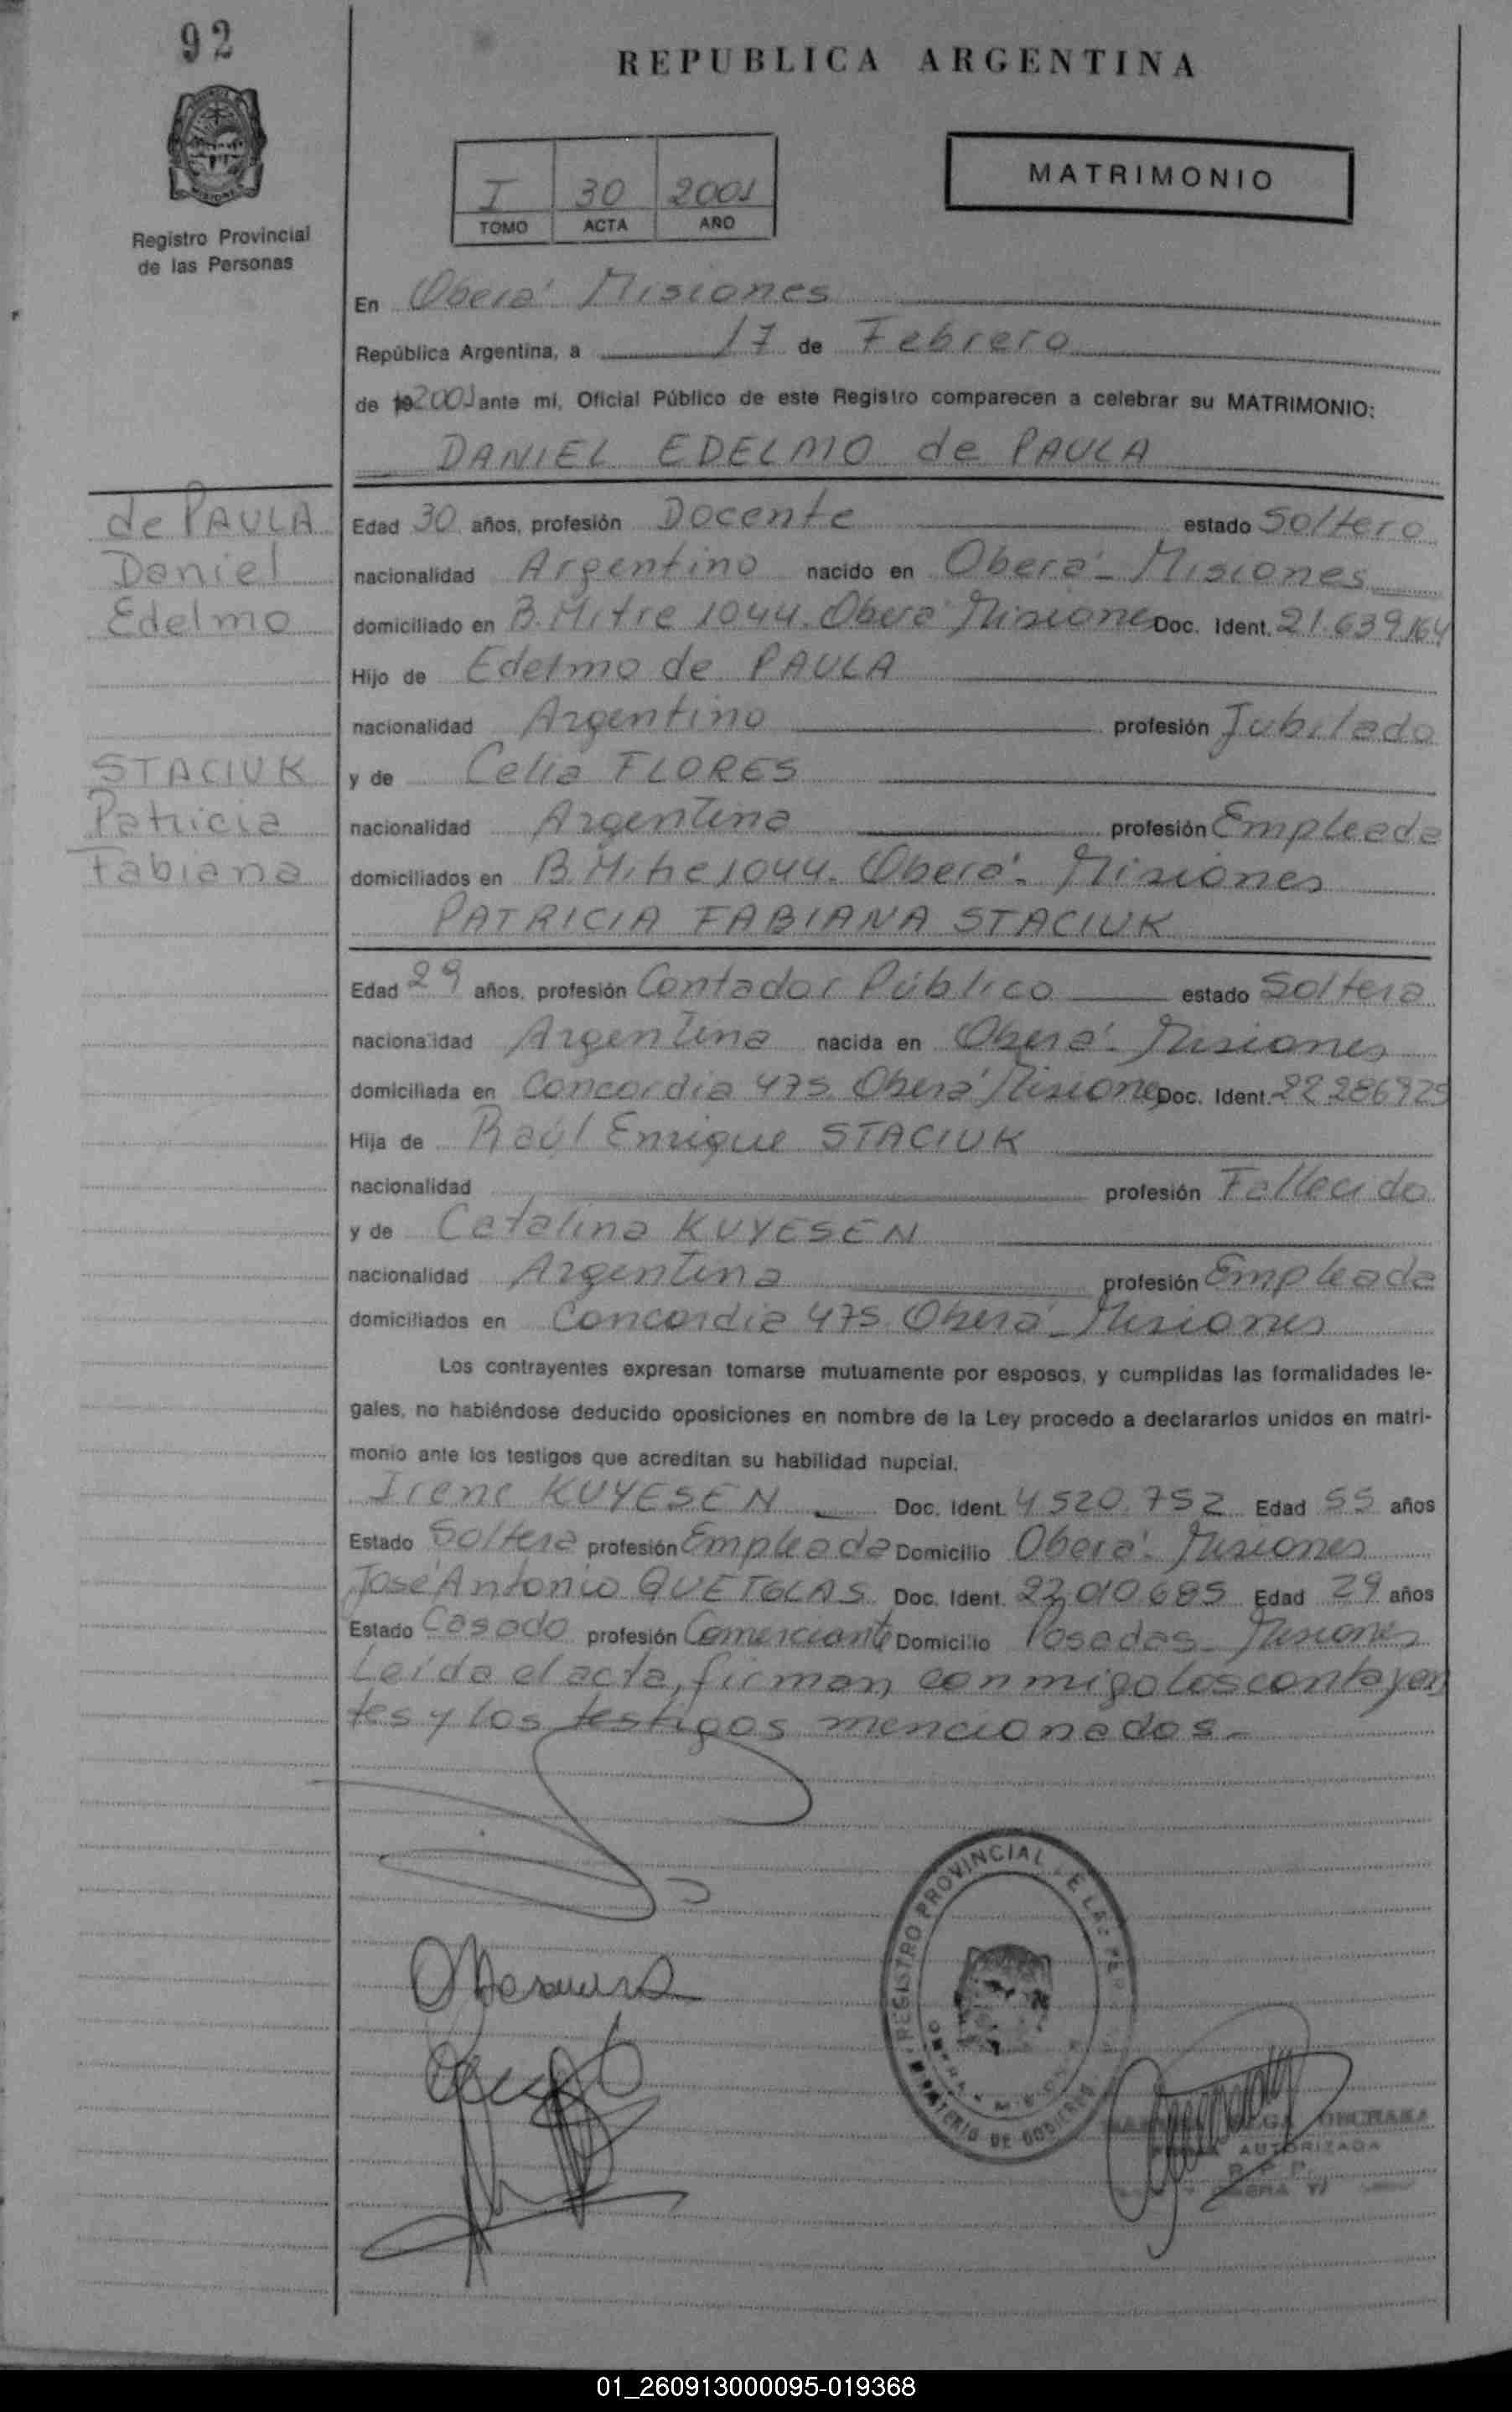 92
REPUBLICA ARGENTINA
MATRIMONIO
I 30 2001
TOMO ACTA AÑO
Registro Provincial
de las Personas
En Oberá Misiones
República Argentina, a 17 de Febrero
de 2001 ante mi, Oficial Público de este Registro comparecen a celebrar su MATRIMONIO:
DANIEL EDELMO de PAULA
de PAULA
Daniel
Edelmo
Edad 30 años, profesión Docente estado Soltero
nacionalidad Argentino nacido en Oberá - Misiones
domiciliado en B. Mitre 1044. Oberá Misiones Doc. Ident. 21.639.164
Hijo de Edelmo de PAULA
nacionalidad Argentino profesión Jubilado
STACIUK
Patricia
Fabiana
y de Celia FLORES
nacionalidad Argentina profesión Empleada
domiciliados en B. Mitre 1044. Oberá - Misiones
PATRICIA FABIANA STACIUK
Edad 29 años, profesión Contador Público estado Soltera
nacionalidad Argentina nacida en Oberá - Misiones
domiciliada en Concordia 475 Oberá Misiones Doc. Ident. 22.286925
Hija de Raúl Enrique STACIUK
nacionalidad profesión Fallecido
y de Catalina KUYESEN
nacionalidad Argentina profesión Empleada
domiciliados en Concordia 475 Oberá - Misiones
Los contrayentes expresan tomarse mutuamente por esposos, y cumplidas las formalidades le-
gales, no habiéndose deducido oposiciones en nombre de la Ley procedo a declararlos unidos en matri-
monio ante los testigos que acreditan su habilidad nupcial.
Irene KUYESEN Doc. Ident. 4520.752 Edad 55 años
Estado Soltera profesión Empleada Domicilio Oberá - Misiones
José Antonio QUETGLAS Doc. Ident. 22,010.685 Edad 29 años
Estado Casado profesión Comerciante Domicilio Posadas - Misiones
Leída el acta, firman conmigo los contayen
tes y los testigos mencionados.-
REGISTRO PROVINCIAL E LAS PER
MINISTERIO DE GOBIERNO
AUTORIZADA
R P P
01_260913000095-019368